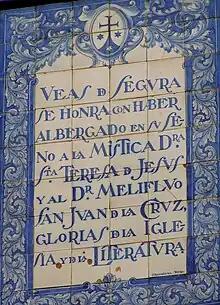 VEAS D SEGURA
SE HONRA CON HABER
ALBERGADO EN SU SE-
NO A LA MISTICA DRA
STA. TERESA D JESUS
Y AL DR. MELIFLVO
SAN JVAN D LA CRUZ,
GLORIAS D LA IGLE
SIA Y D LA LITERATURA